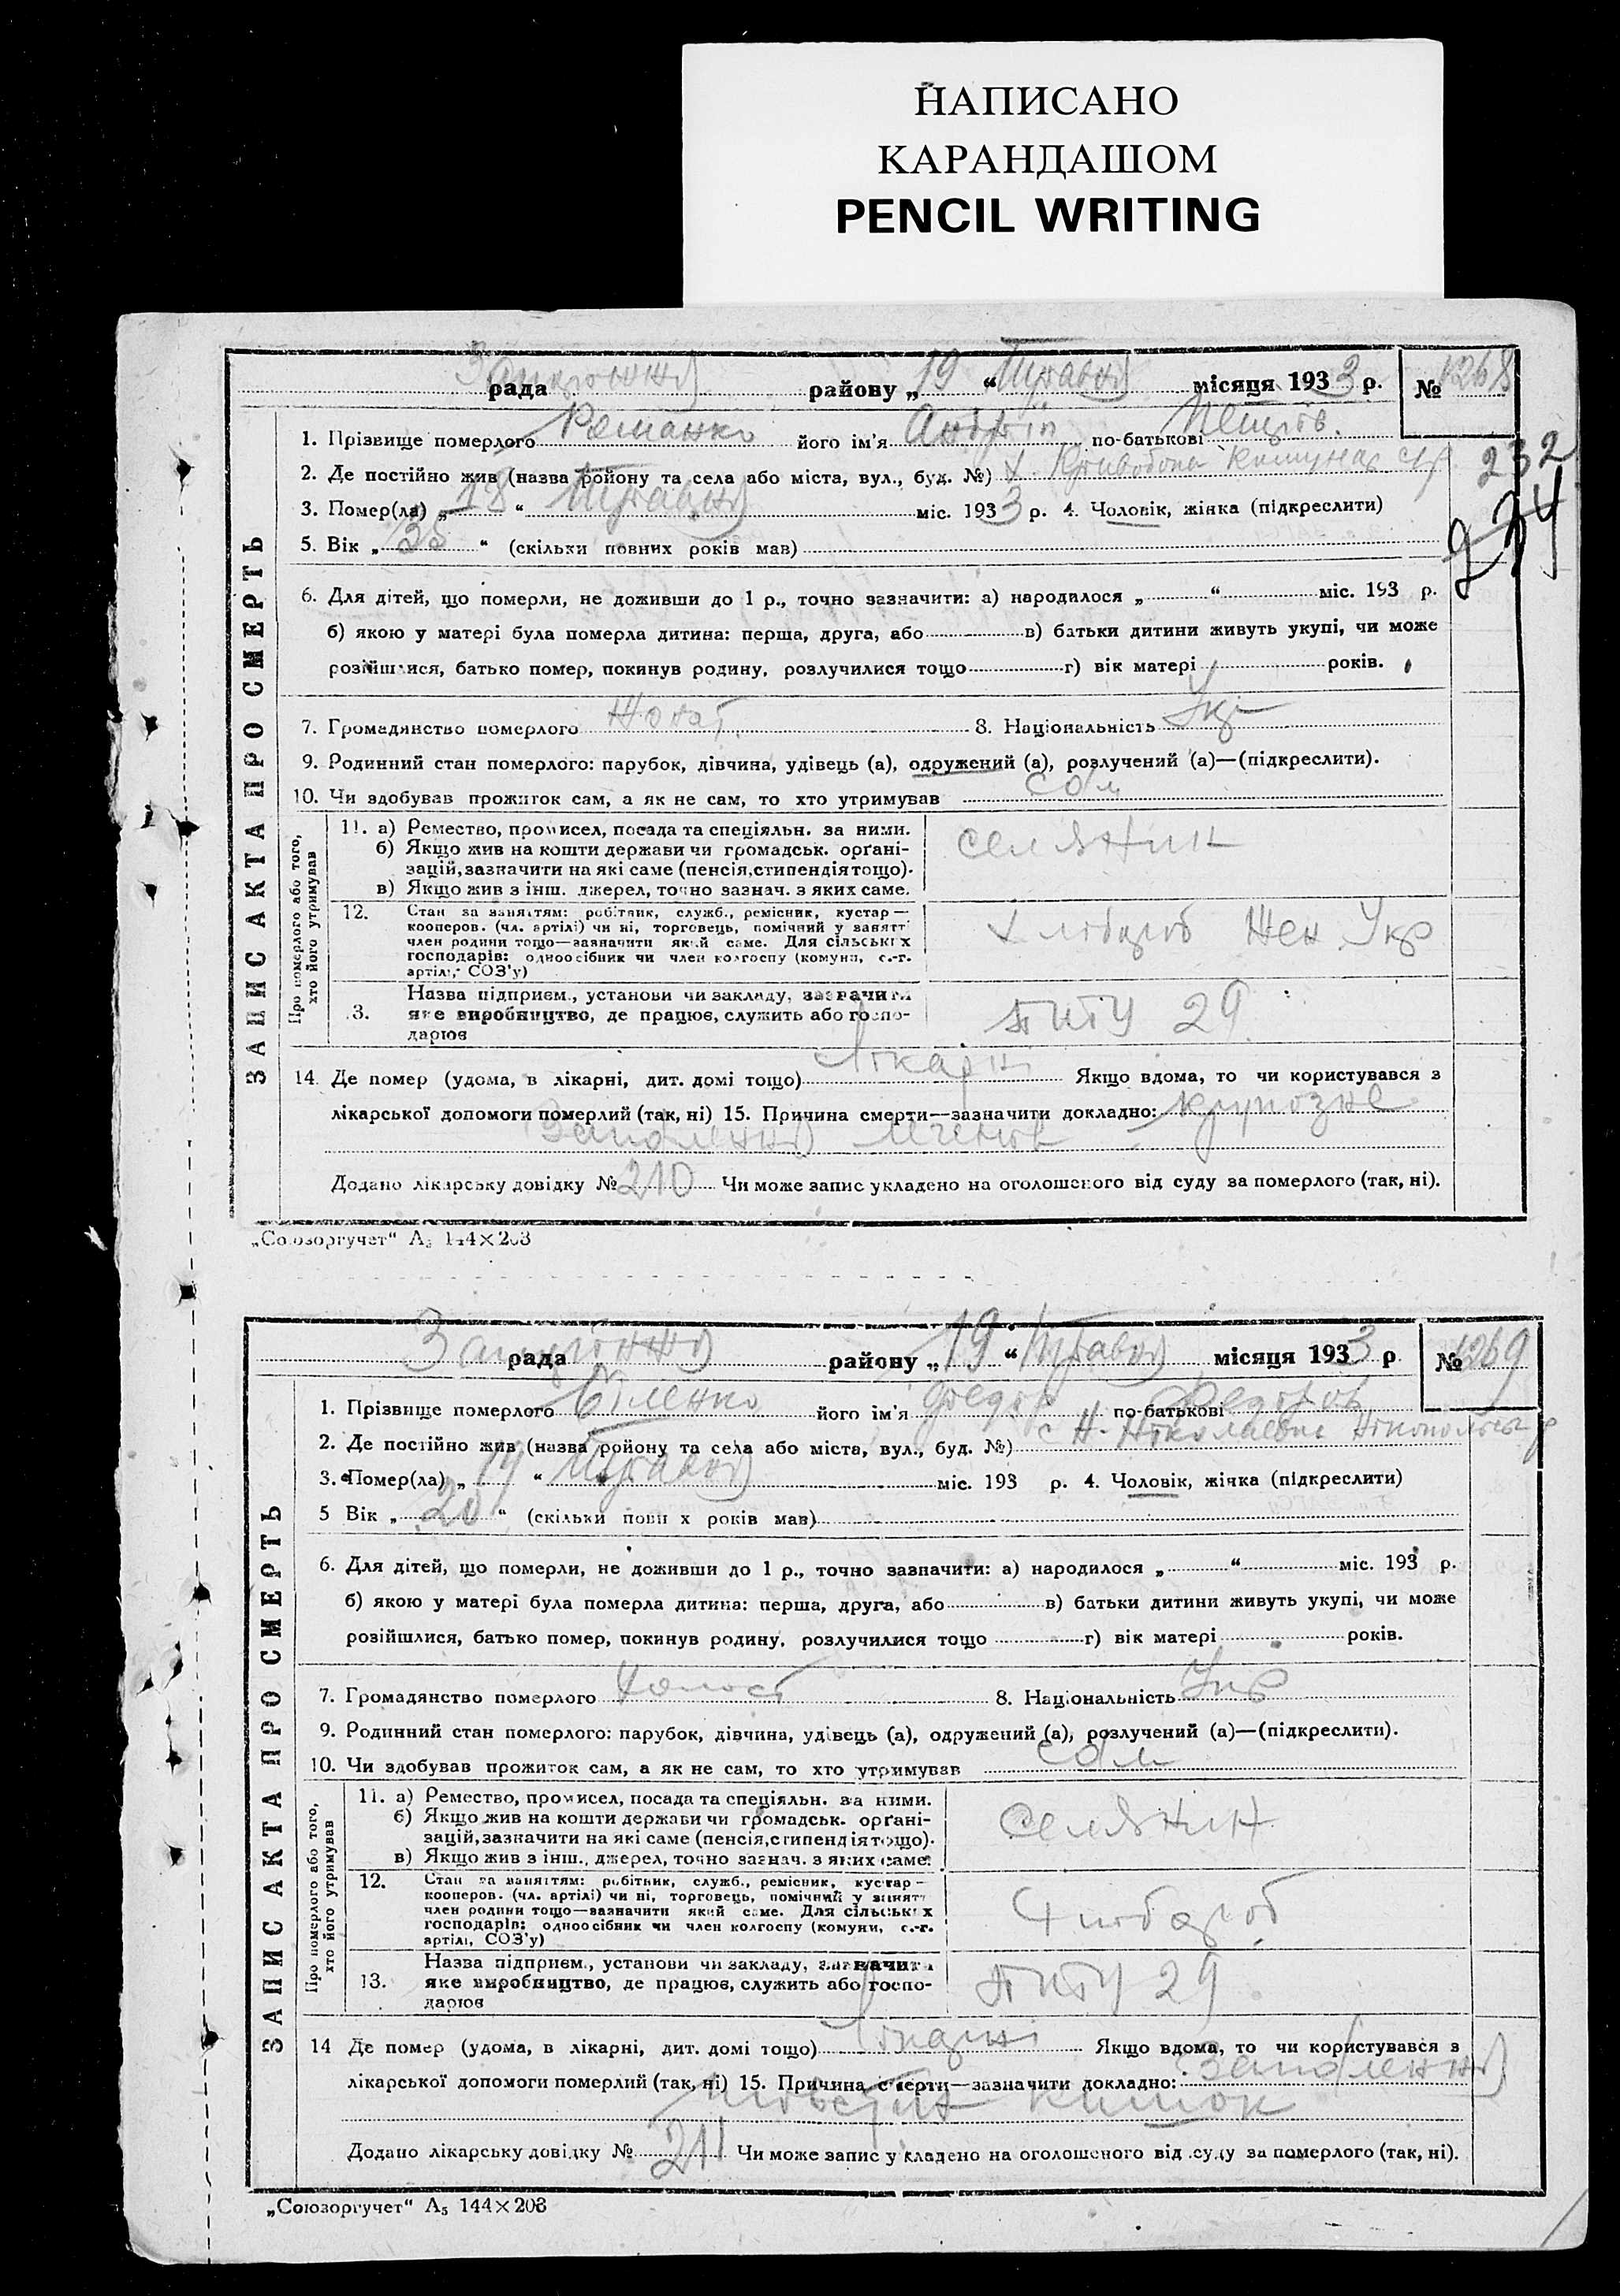 НАПИСАНО
КАРАНДАШОМ
PENCIL WRITING
рада району „19“ Травня місяця 1933 р. № 1268
ЗАПИС АКТА ПРО СМЕРТЬ
1. Прізвище померлого Романко його ім'я Андрій по-батькові
2. Де постійно жив (назва ройону та села або міста, вул., буд. №)
232
3. Помер(ла) „18“ Травня міс. 1933 р. 4. Чоловік, жінка (підкреслити)
234
5. Вік „35“ (скільки повних років мав)
6. Для дітей, що померли, не доживши до 1 р., точно зазначити: а) народилося „ “ міс. 193 р.
б) якою у матері була померла дитина: перша, друга, або в) батьки дитини живуть укупі, чи може
розійшлися, батько помер, покинув родину, розлучилися тощо г) вік матері років.
7. Громадянство померлого Жонат 8. Національність Укр
9. Родинний стан померлого: парубок, дівчина, удівець (а), одружений (а), розлучений (а)—(підкреслити).
10. Чи здобував прожиток сам, а як не сам, то хто утримував сам
Про померлого або того, хто його утримував
11. а) Ремество, промисел, посада та спеціяльн. за ними.
б) Якщо жив на кошти держави чи громадськ. орґані-
зацій, зазначити на які саме (пенсія, стипендія тощо).
в) Якщо жив з інш. джерел, точно зазнач. з яких саме.
селянин
12. Стан за заняттям: робітник, служб., ремісник, кустар—
кооперов. (чл. артілі) чи ні, торговець, помічний у занятт
член родини тощо—зазначити який саме. Для сільських
господарів: одноосібник чи член колгоспу (комуни, с.-г.
артілі, СОЗ'у)
Хлібороб Жен. Укр
13. Назва підприєм., установи чи закладу, зазначити
яке виробництво, де працює, служить або госпо-
дарює
29
14. Де помер (удома, в лікарні, дит. домі тощо) Лікарні Якщо вдома, то чи користувався з
лікарської допомоги померлий (так, ні) 15. Причина смерти—зазначити докладно: крупозне
Запалення легенів
Додано лікарську довідку № 210 Чи може запис укладено на оголошеного від суду за померлого (так, ні).
„Союзоргучет“ А₅ 144×203
рада району „19“ Травня місяця 1933 р № 1269
ЗАПИС АКТА ПРО СМЕРТЬ
1. Прізвище померлого Біленко його ім'я Федір по-батькові Федоров
2. Де постійно жив (назва ройону та села або міста, вул., буд. №) с Н-
3. Помер(ла) „ “ Травня міс. 193 р. 4. Чоловік, жінка (підкреслити)
5 Вік „20“ (скільки повн х років мав)
6. Для дітей, що померли, не доживши до 1 р., точно зазначити: а) народилося „ “ міс. 193 р.
б) якою у матері була померла дитина: перша, друга, або в) батьки дитини живуть укупі, чи може
розійшлися, батько помер, покинув родину, розлучилися тощо г) вік матері років.
7. Громадянство померлого Холост 8. Національність Укр
9. Родинний стан померлого: парубок, дівчина, удівець (а), одружений (а), розлучений (а)—(підкреслити).
10. Чи здобував прожиток сам, а як не сам, то хто утримував сам
Про померлого або того, хто його утримував
11. а) Ремество, промисел, посада та спеціяльн. за ними.
б) Якщо жив на кошти держави чи громадськ. орґані-
зацій, зазначити на які саме (пенсія, стипендія тощо).
в) Якщо жив з інш. джерел, точно зазнач. з яких саме.
Селянин
12. Стан за заняттям: робітник, служб., ремісник, кустар—
кооперов. (чл. артілі) чи ні, торговець, помічний у занятт
член родини тощо—зазначити який саме. Для сільських
господарів: одноосібник чи член колгоспу (комуни, с.-г.
артілі, СОЗ'у)
Хлібороб
13. Назва підприєм., установи чи закладу, зазначити
яке виробництво, де працює, служить або госпо-
дарює
29
14 Де помер (удома, в лікарні, дит. домі тощо) Лікарні Якщо вдома, то чи користувався з
лікарської допомоги померлий (так, ні) 15. Причина смерти—зазначити докладно: Запалення
кишок
Додано лікарську довідку № 211 Чи може запис укладено на оголошеного від суду за померлого (так, ні).
„Союзоргучет“ А₅ 144×203